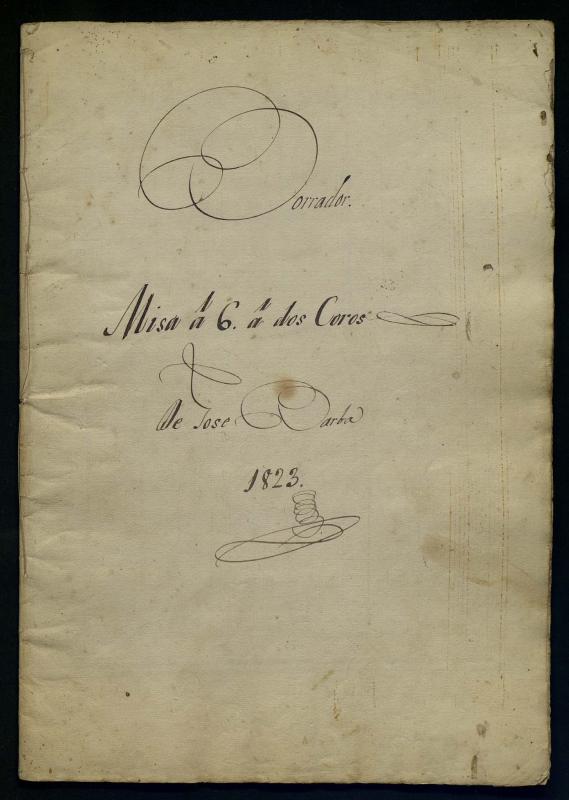 Borrador.
Misa á 6. á dos Coros
de Jose Barba
1823.